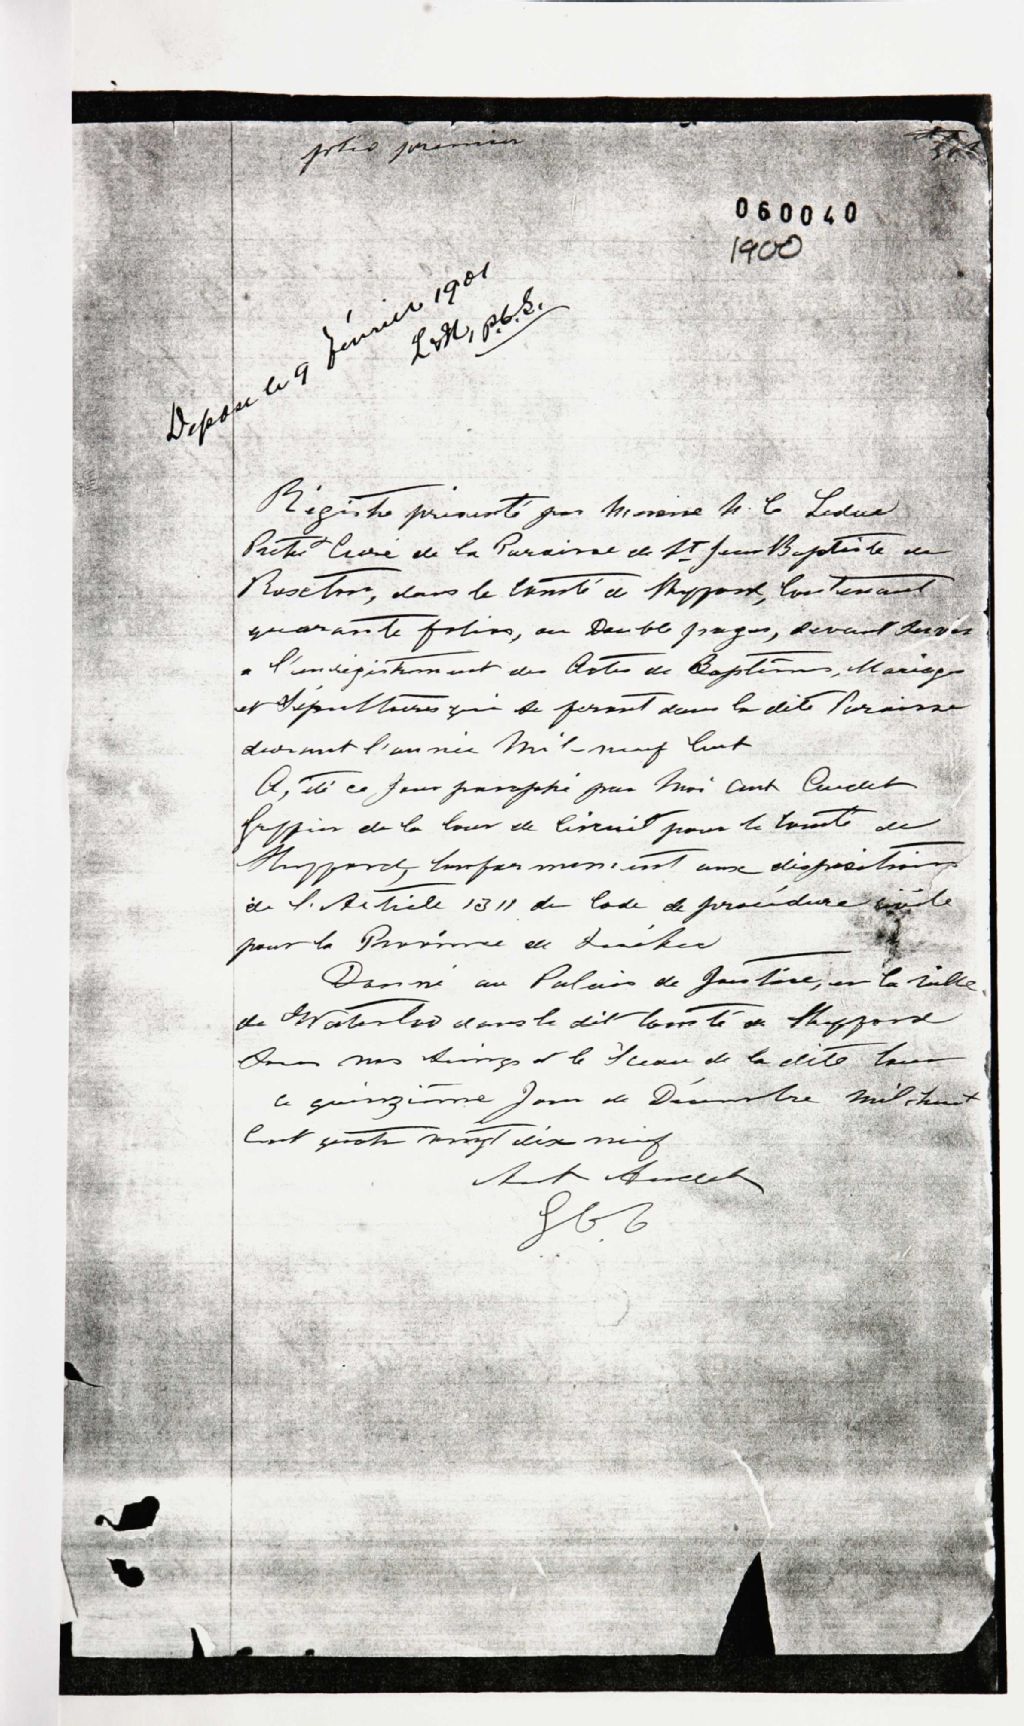 folio premier
060040
1900
Deposé le 9 février 1901
p.c.s.
Régistre présenté par Messire N. C. Leduc
Prêtre Curé de la Paroisse de St Jean Baptiste de
Roxton, dans le Comté de Shefford, Contenant
quarante folios, ou Double pages, devant servir
a l'enrégistrement des Actes de Baptêmes, Mariages
et Sépultures qui se feront dans la dite Paroisse
durant l'année Mil-neuf Cent
A, été ce Jour paraphé par Moi Ant Audet
Greffier de la Cour de Circuit pour le Comté de
Shefford, Conformement aux dispositions
de l'Article 1311 du Code de procédure civile
pour la Province de Québec
Donné au Palais de Justice, en la ville
de Waterloo dans le dit Comté de Shefford
Sous nos Seings et le Sceau de la dite Cour
ce quinzième Jour de Décembre Mil huit
Cent quatre vingt dix neuf
Ant Audet
G C. C